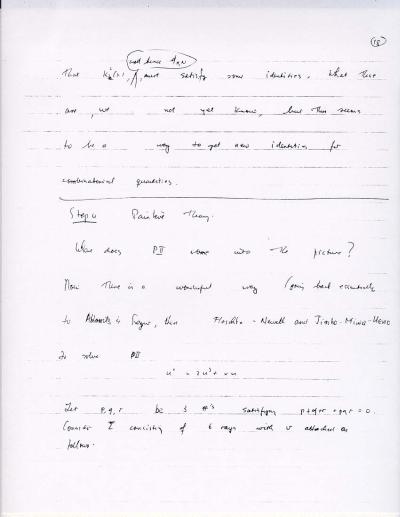 (18)
and hence
That must satisfy some identities. What these
are, we not yet know, but this seems
to be a way to get new identities for
combinatorial quantities.
Step 4 Painlevé Theory.
Where does PII come into the picture?
Now there is a wonderful way (going back essentially
to Ablowitz & Segur, then Flaschka - Newell and Jimbo-Miwa-Ueno
to solve PII
u" = 2u³ + xu
Let p, q, r be 3 #'s satisfying p+q+r +pqr = 0.
Consider Σ consisting of 6 rays with v attached as
follows.